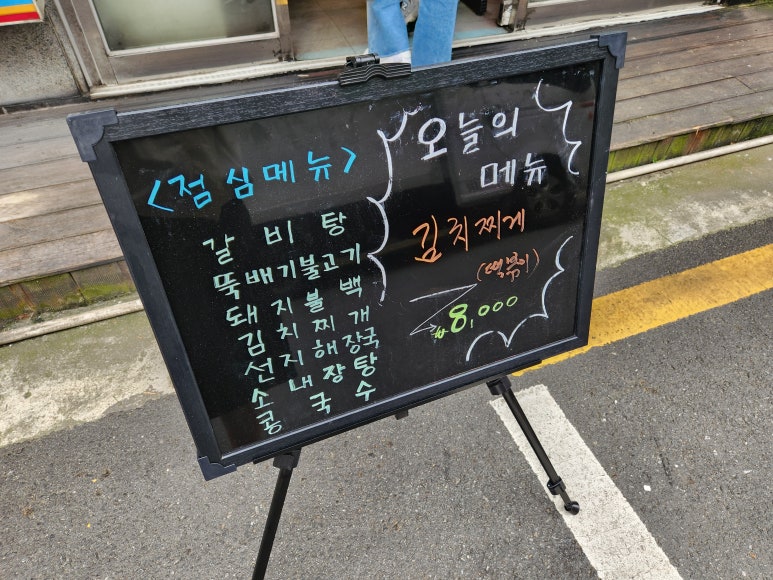 <점심메뉴>
갈비탕
뚝배기불고기
돼지불백
김치찌개
선지해장국
소내장탕
콩국수
오늘의
메뉴
김치찌게
(떡볶이)
₩8,000